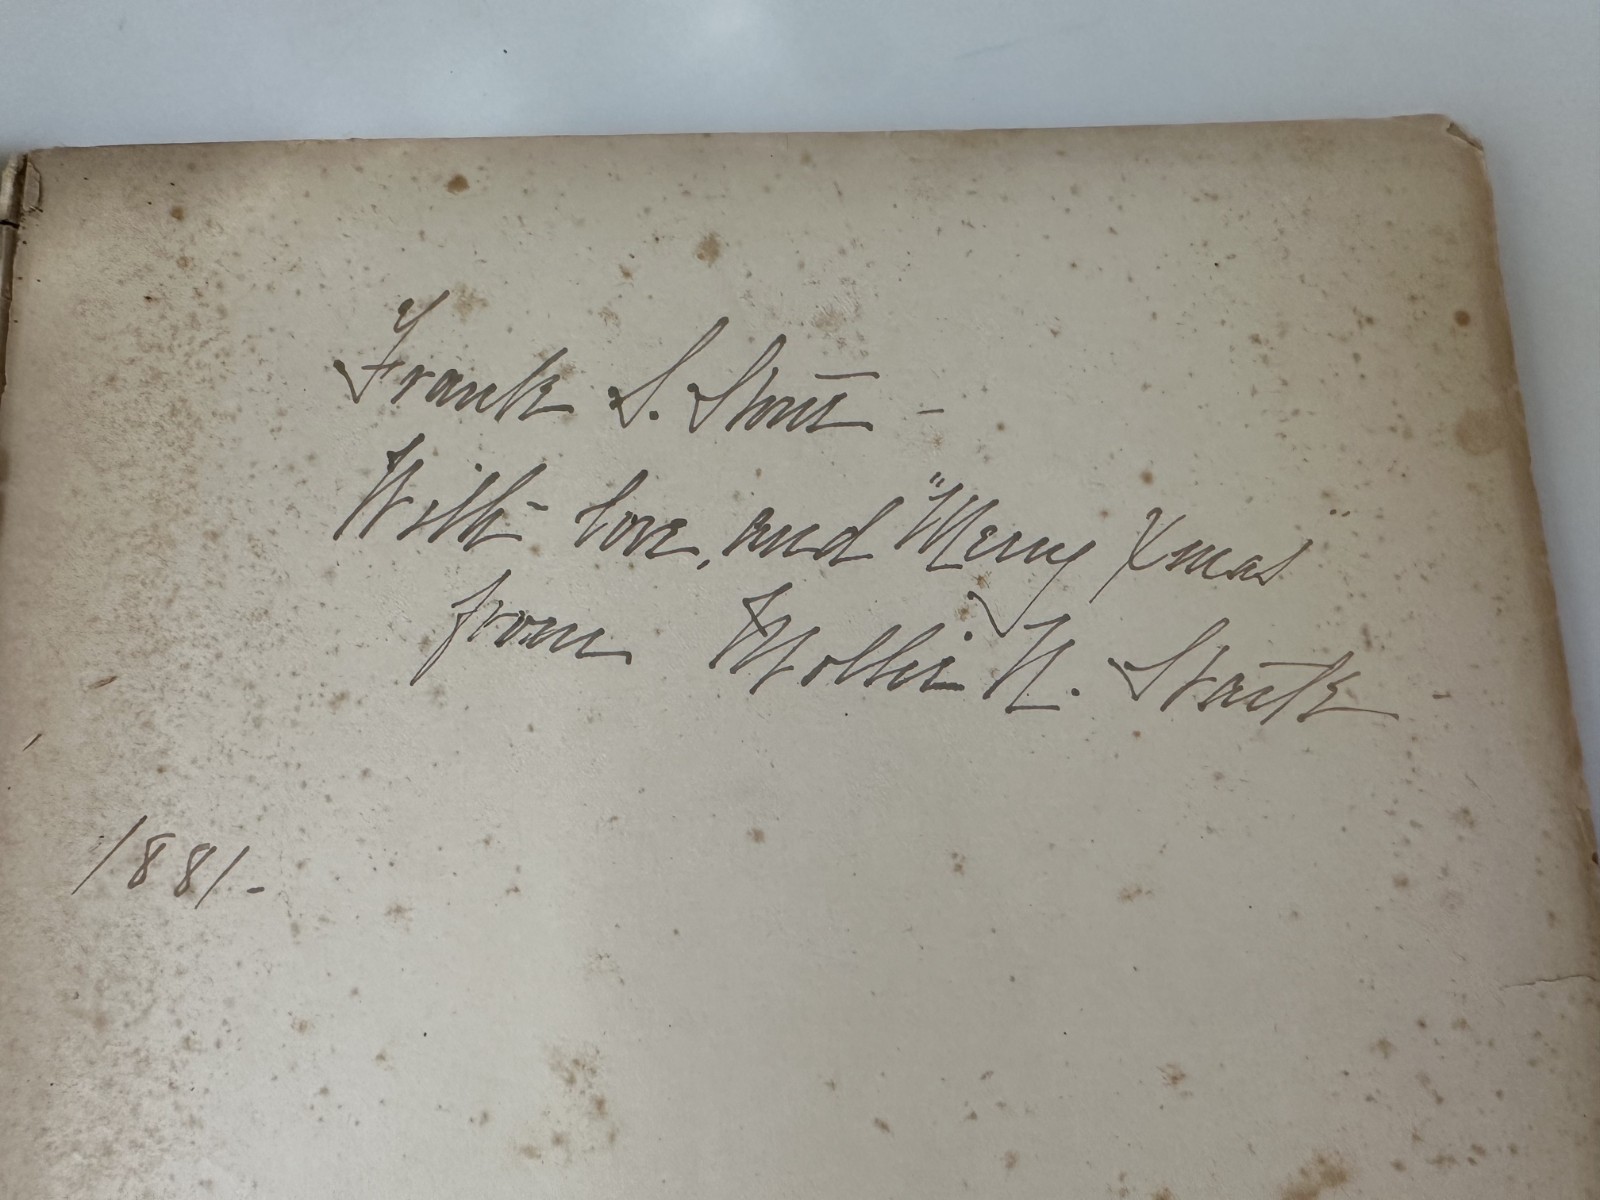 Frank S. Stout -
With love, and "Merry Xmas"
from Mollie N. Stark -
1881-